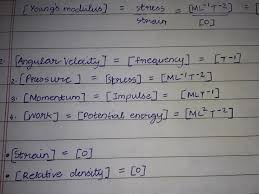 [Young's modulus] = stress/strain = [ML⁻¹T⁻²]/[0] = [
2. [Angular velocity] = [frequency] = [T⁻¹]
2. [Pressure] = [stress] = [ML⁻¹T⁻²]
3. [Momentum] = [Impulse] = [MLT⁻¹]
4. [Work] = [Potential energy] = [ML²T⁻²]
• [Strain] = [0]
• [Relative density] = [0]